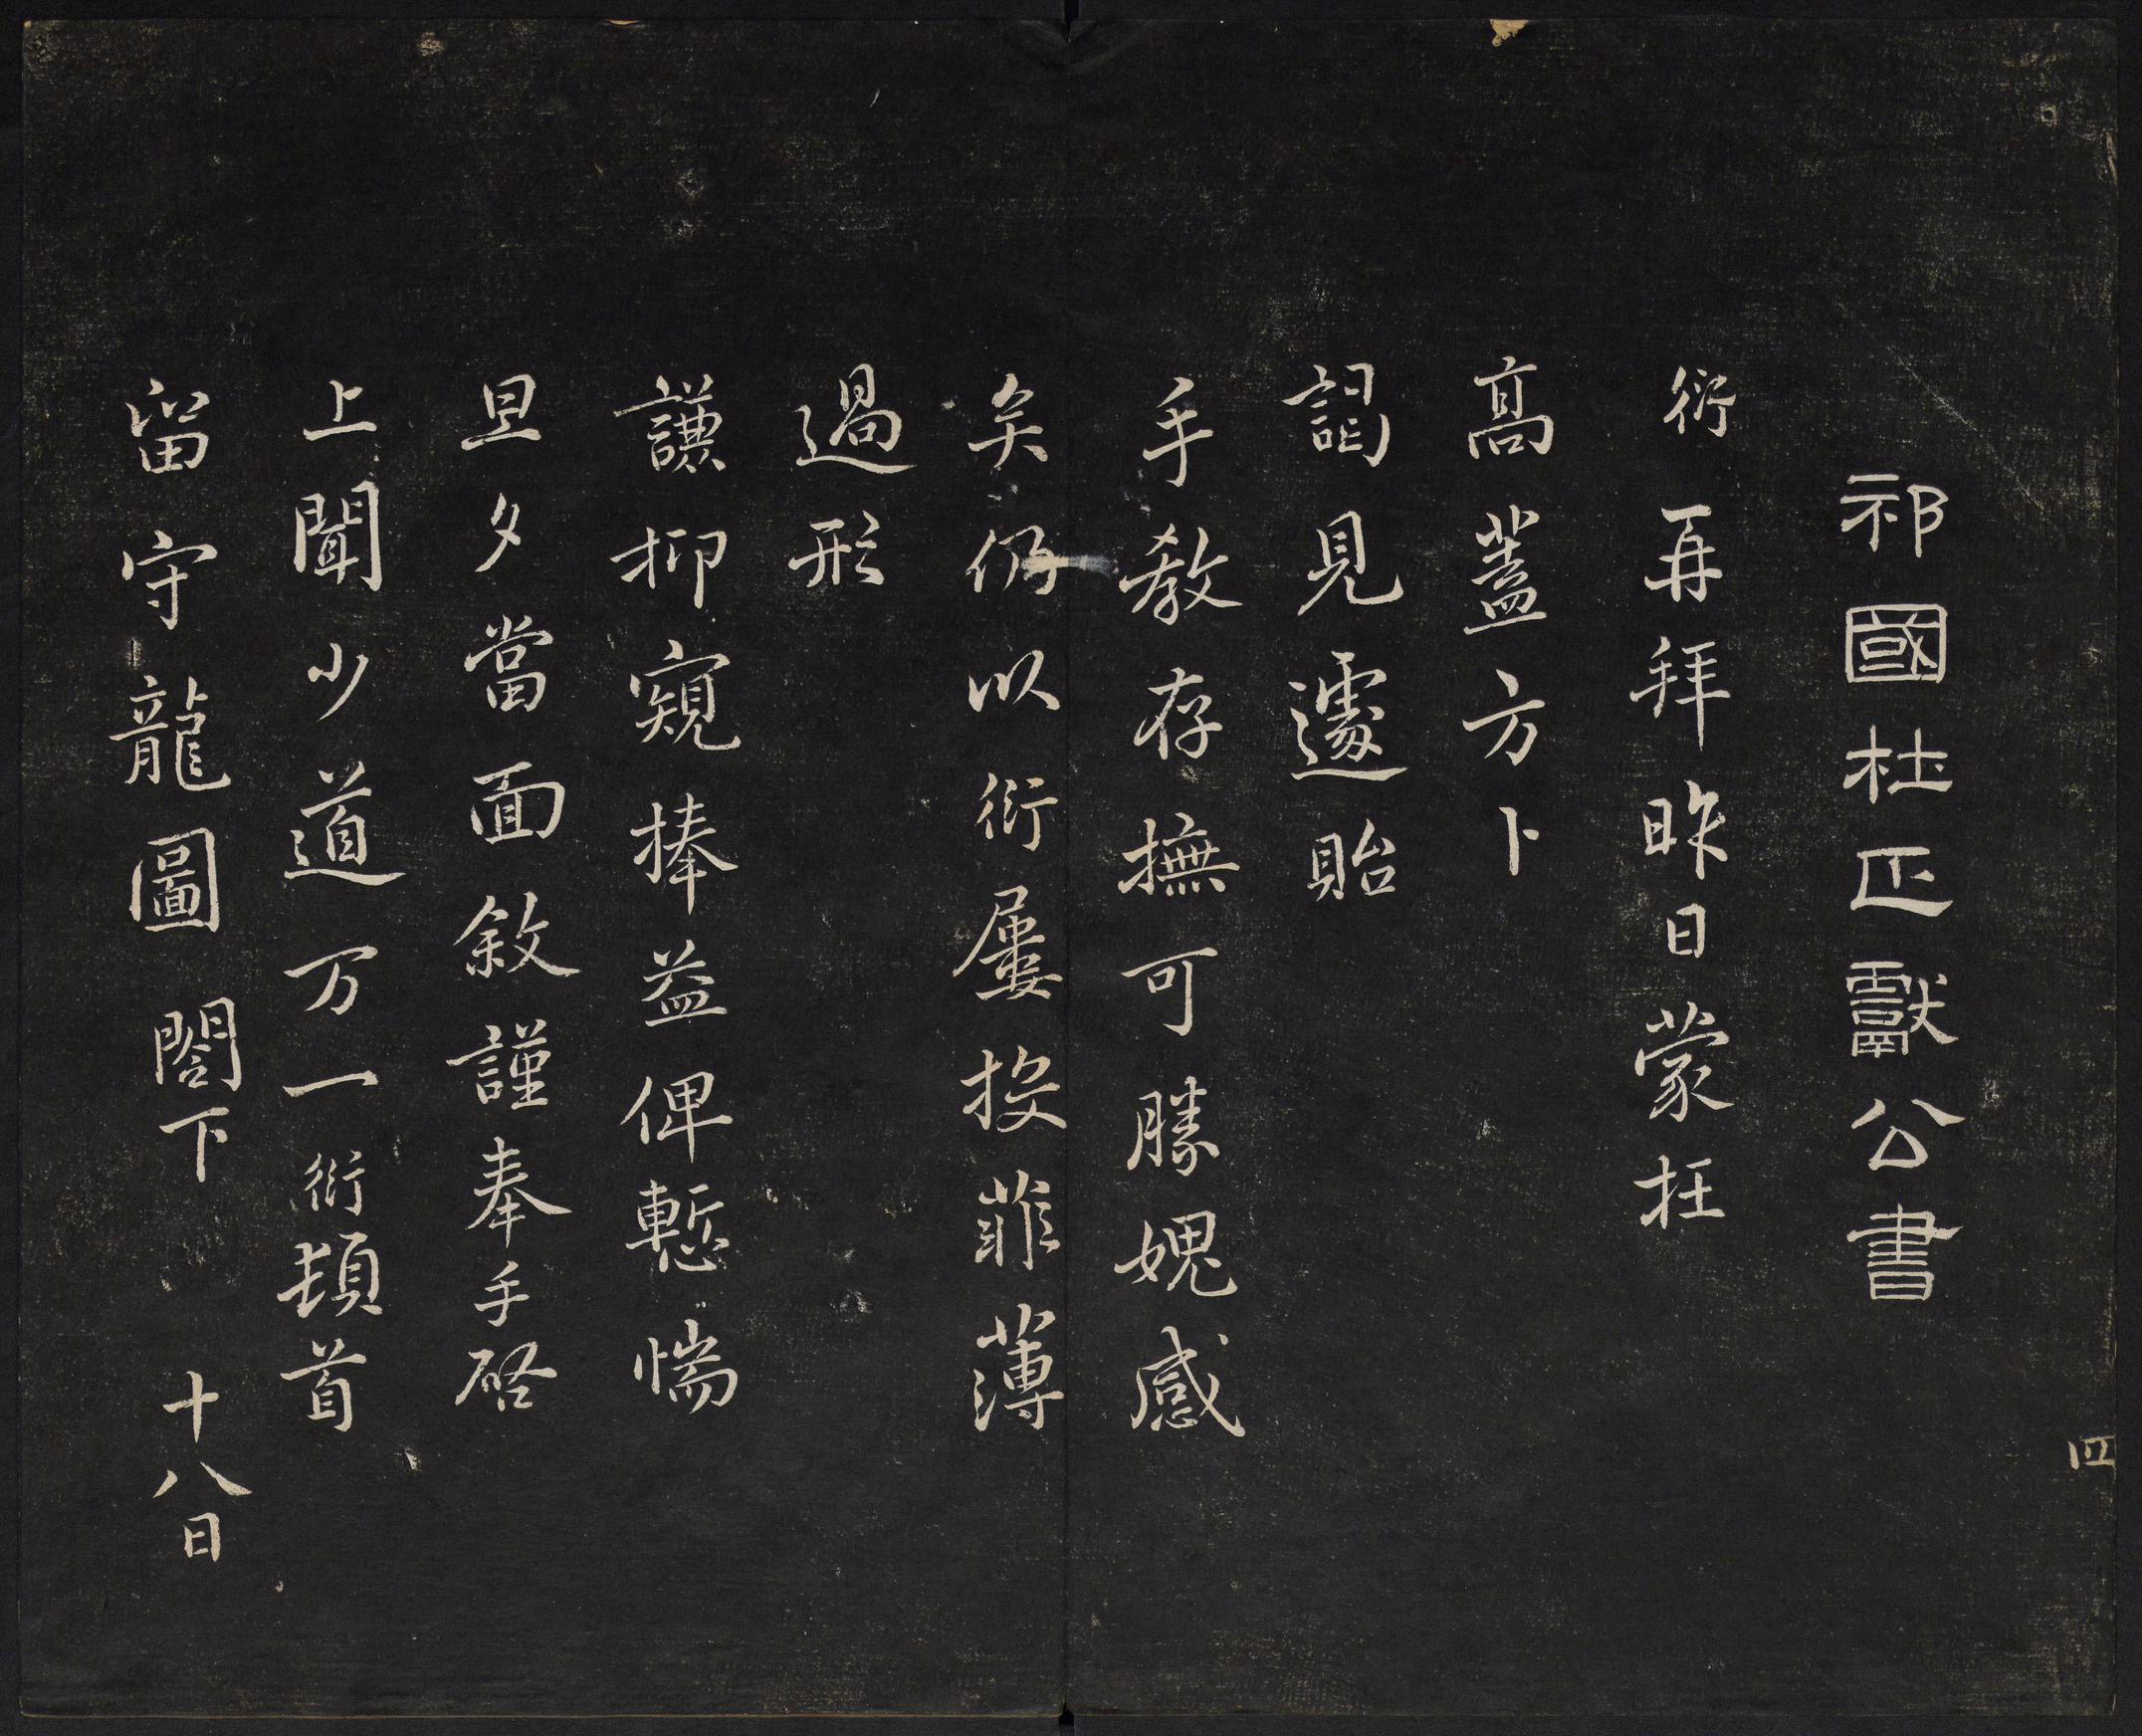 祁國杜正獻公書
衍再拜昨日蒙枉
高蓋方卜
謁見遽貽
手教存撫可勝媿感
矣仍以衍屢投菲薄
過形
謙抑窺捧益俾慙惴
旦夕當面敘謹奉手啓
上聞少道万一衍頓首
留守龍圖閣下 十八日
四